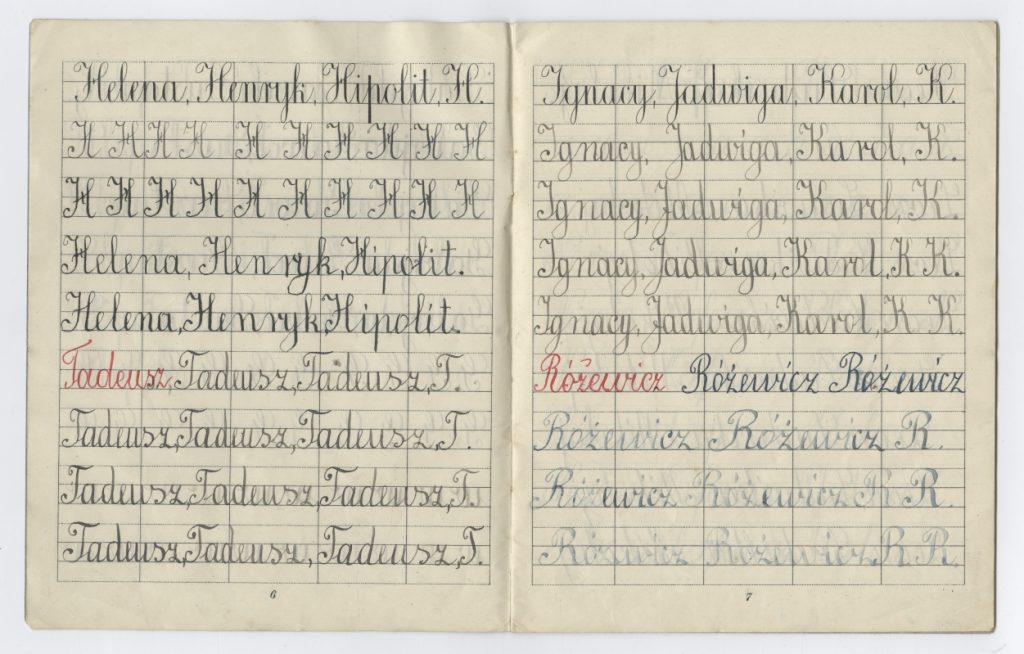 Helena, Henryk, Hipolit, H.
H H H H H H H H H H
H H H H H H H H H H
Helena, Henryk, Hipolit.
Helena, Henryk, Hipolit.
Tadeusz, Tadeusz, Tadeusz, T.
Tadeusz, Tadeusz, Tadeusz, T.
Tadeusz, Tadeusz, Tadeusz, T.
Tadeusz, Tadeusz, Tadeusz, T.
6
Ignacy, Jadwiga, Karol, K.
Ignacy, Jadwiga, Karol, K.
Ignacy, Jadwiga, Karol, K.
Ignacy, Jadwiga, Karol, K K.
Ignacy, Jadwiga, Karol, K K.
Różewicz Różewicz Różewicz
Różewicz Różewicz R.
Różewicz Różewicz R R.
Różewicz Różewicz R R.
7